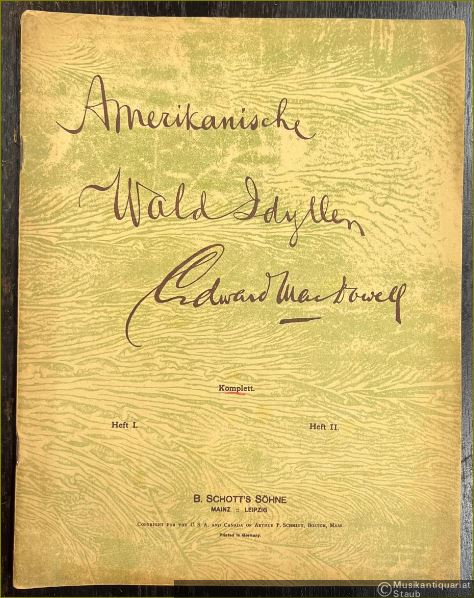 Amerikanische
Wald Idyllen
Edward MacDowell
Komplett.
Heft I. Heft II.
B. SCHOTT'S SÖHNE
MAINZ :: LEIPZIG
COPYRIGHT FOR THE U. S. A. AND CANADA OF ARTHUR P. SCHMIDT, BOSTON, MASS
Printed in Germany.
© Musikantiquariat
Staub